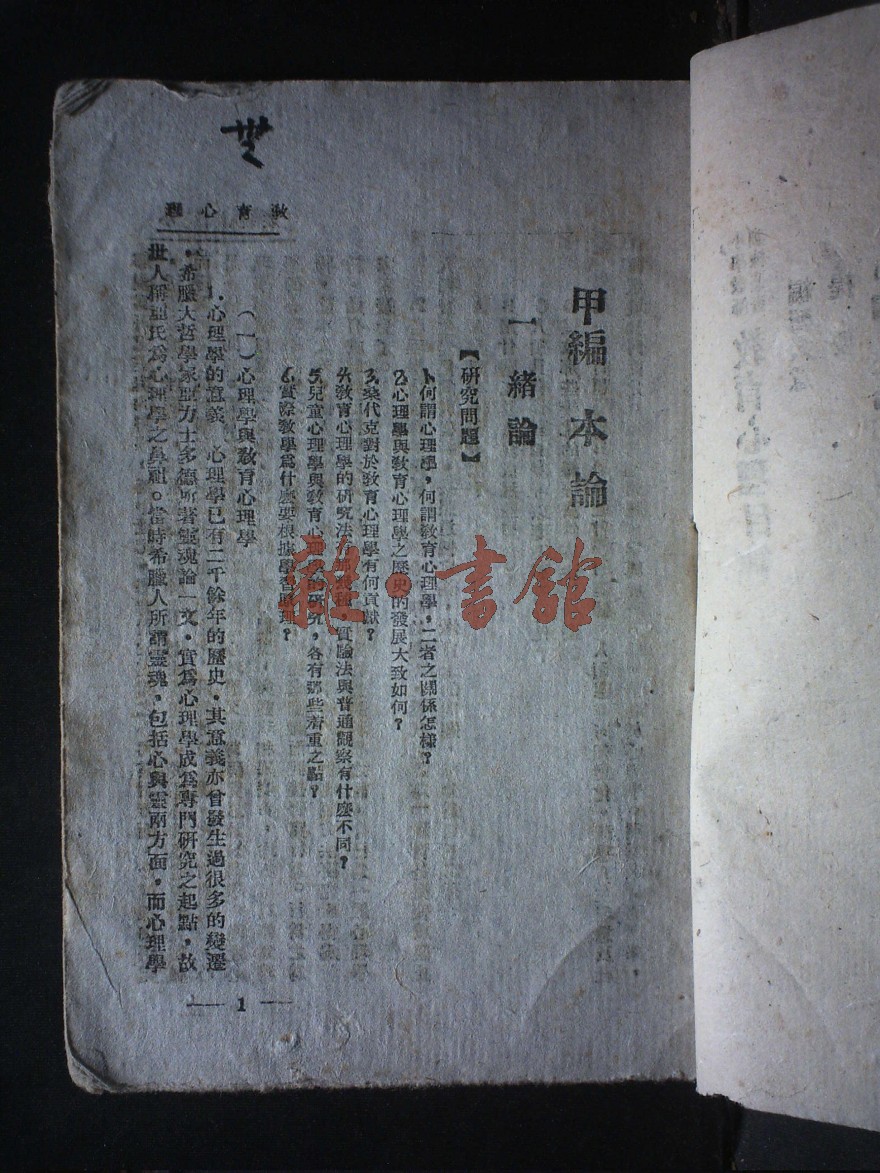 教育心理
甲編 本論
一 緒論
【研究問題】
1.何謂心理學，何謂教育心理學，二者之關係怎樣？
2.心理學與教育心理學之歷史的發展大致如何？
3.桑代克對於教育心理學有何貢獻？
4.教育心理學的研究法有那幾種，實驗法與普通觀察有什麼不同？
5.兒童心理學與教育心理學的研究，各有那些着重之點？
6.實際教學爲什麼要根據學習原理？
(一)心理學與教育心理學
1.心理學的意義 心理學已有二千餘年的歷史，其意義亦曾發生過很多的變遷
，希臘大哲學家亞力士多德所著靈魂論一文，實爲心理學成爲專門研究之起點，故
世人稱亞氏爲心理學之鼻祖。當時希臘人所謂靈魂，包括心與靈兩方面，而心理學
— 1 —
雜·書館